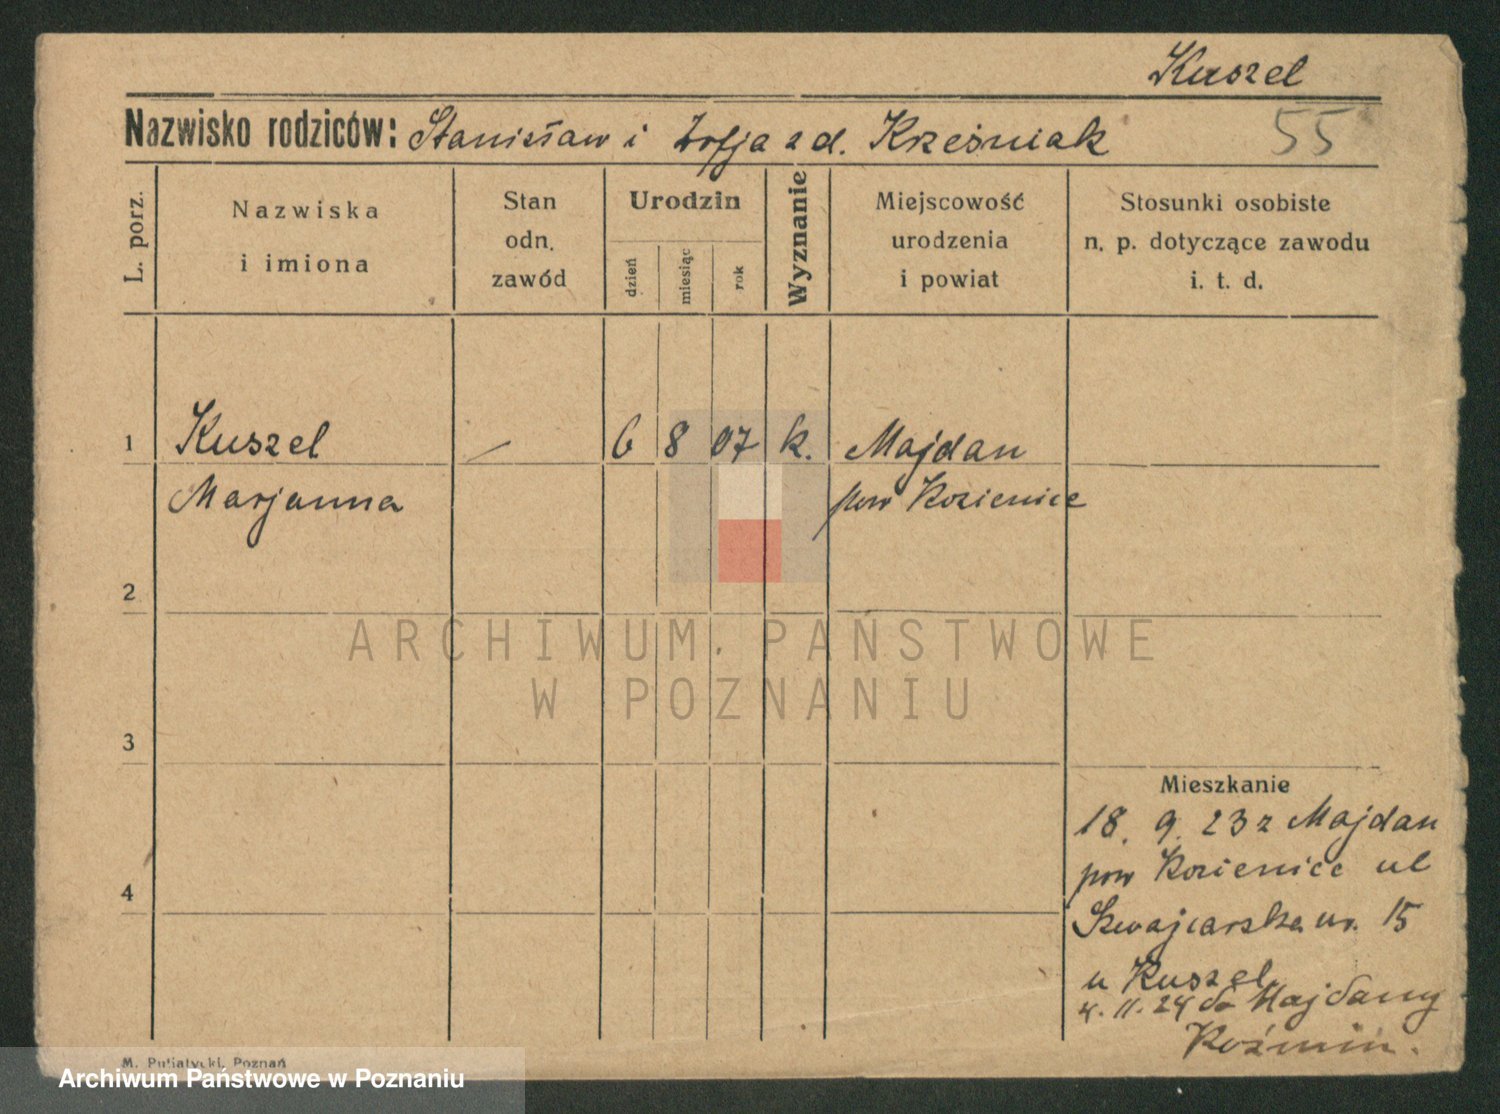 Kuszel
Nazwisko rodziców: Stanisław i Zofja z d. Krześniak
55
L. porz.
Nazwiska
i imiona
Stan
odn.
zawód
Urodzin
dzień
miesiąc
rok
Wyznanie
Miejscowość
urodzenia
i powiat
Stosunki osobiste
n. p. dotyczące zawodu
i. t. d.
1 Kuszel — 6 8 07 k. Majdan
Marjanna pow Kozienice
2
3
4
Mieszkanie
18. 9. 23 z Majdan
pow Kozienice ul
Szwajcarska nr. 15
u Kuszel
4. 11. 24 do Majdany
Koźmin.
M. Putiatycki, Poznań
ARCHIWUM PAŃSTWOWE
W POZNANIU
Archiwum Państwowe w Poznaniu